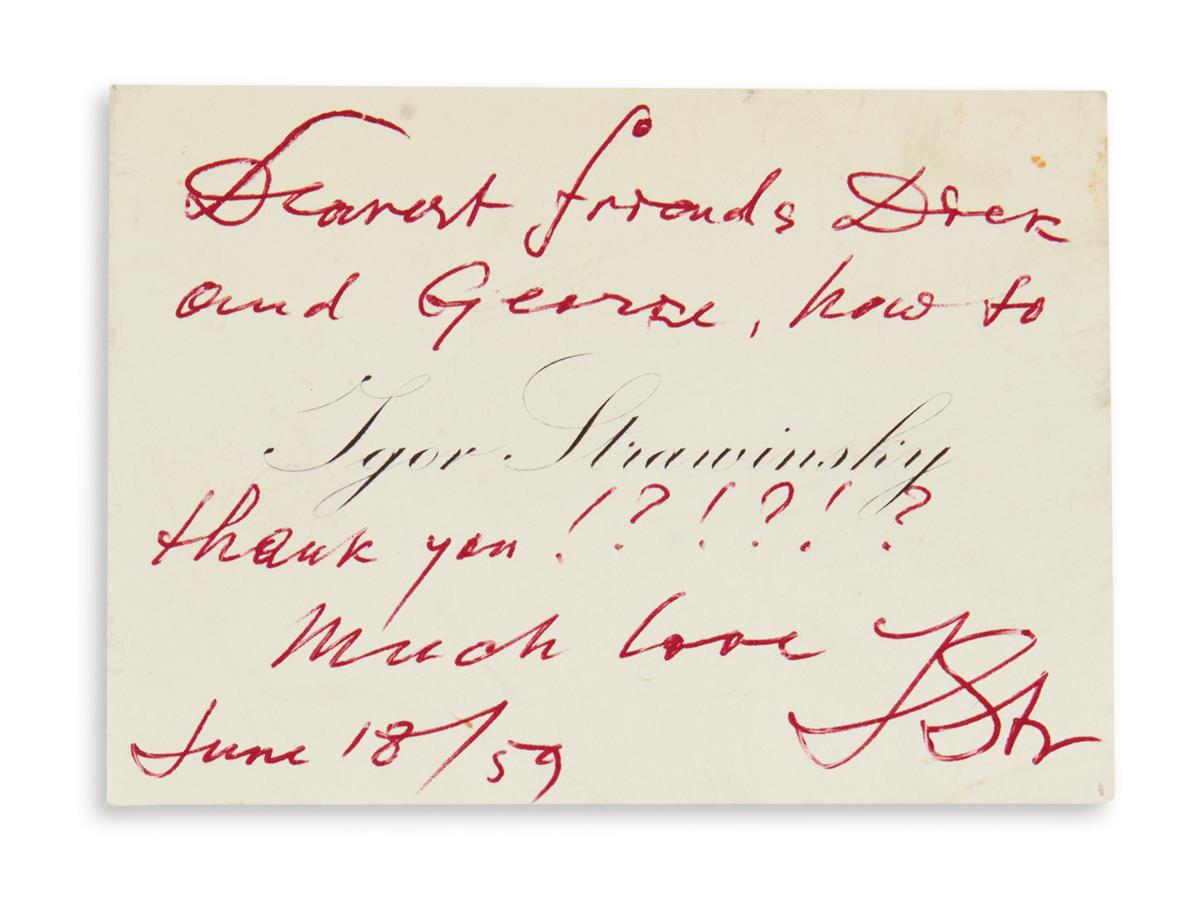 Dearest friends Dick
and George, how to
Igor Strawinsky
thank you !?!?!?
Much love IStr
June 18/59